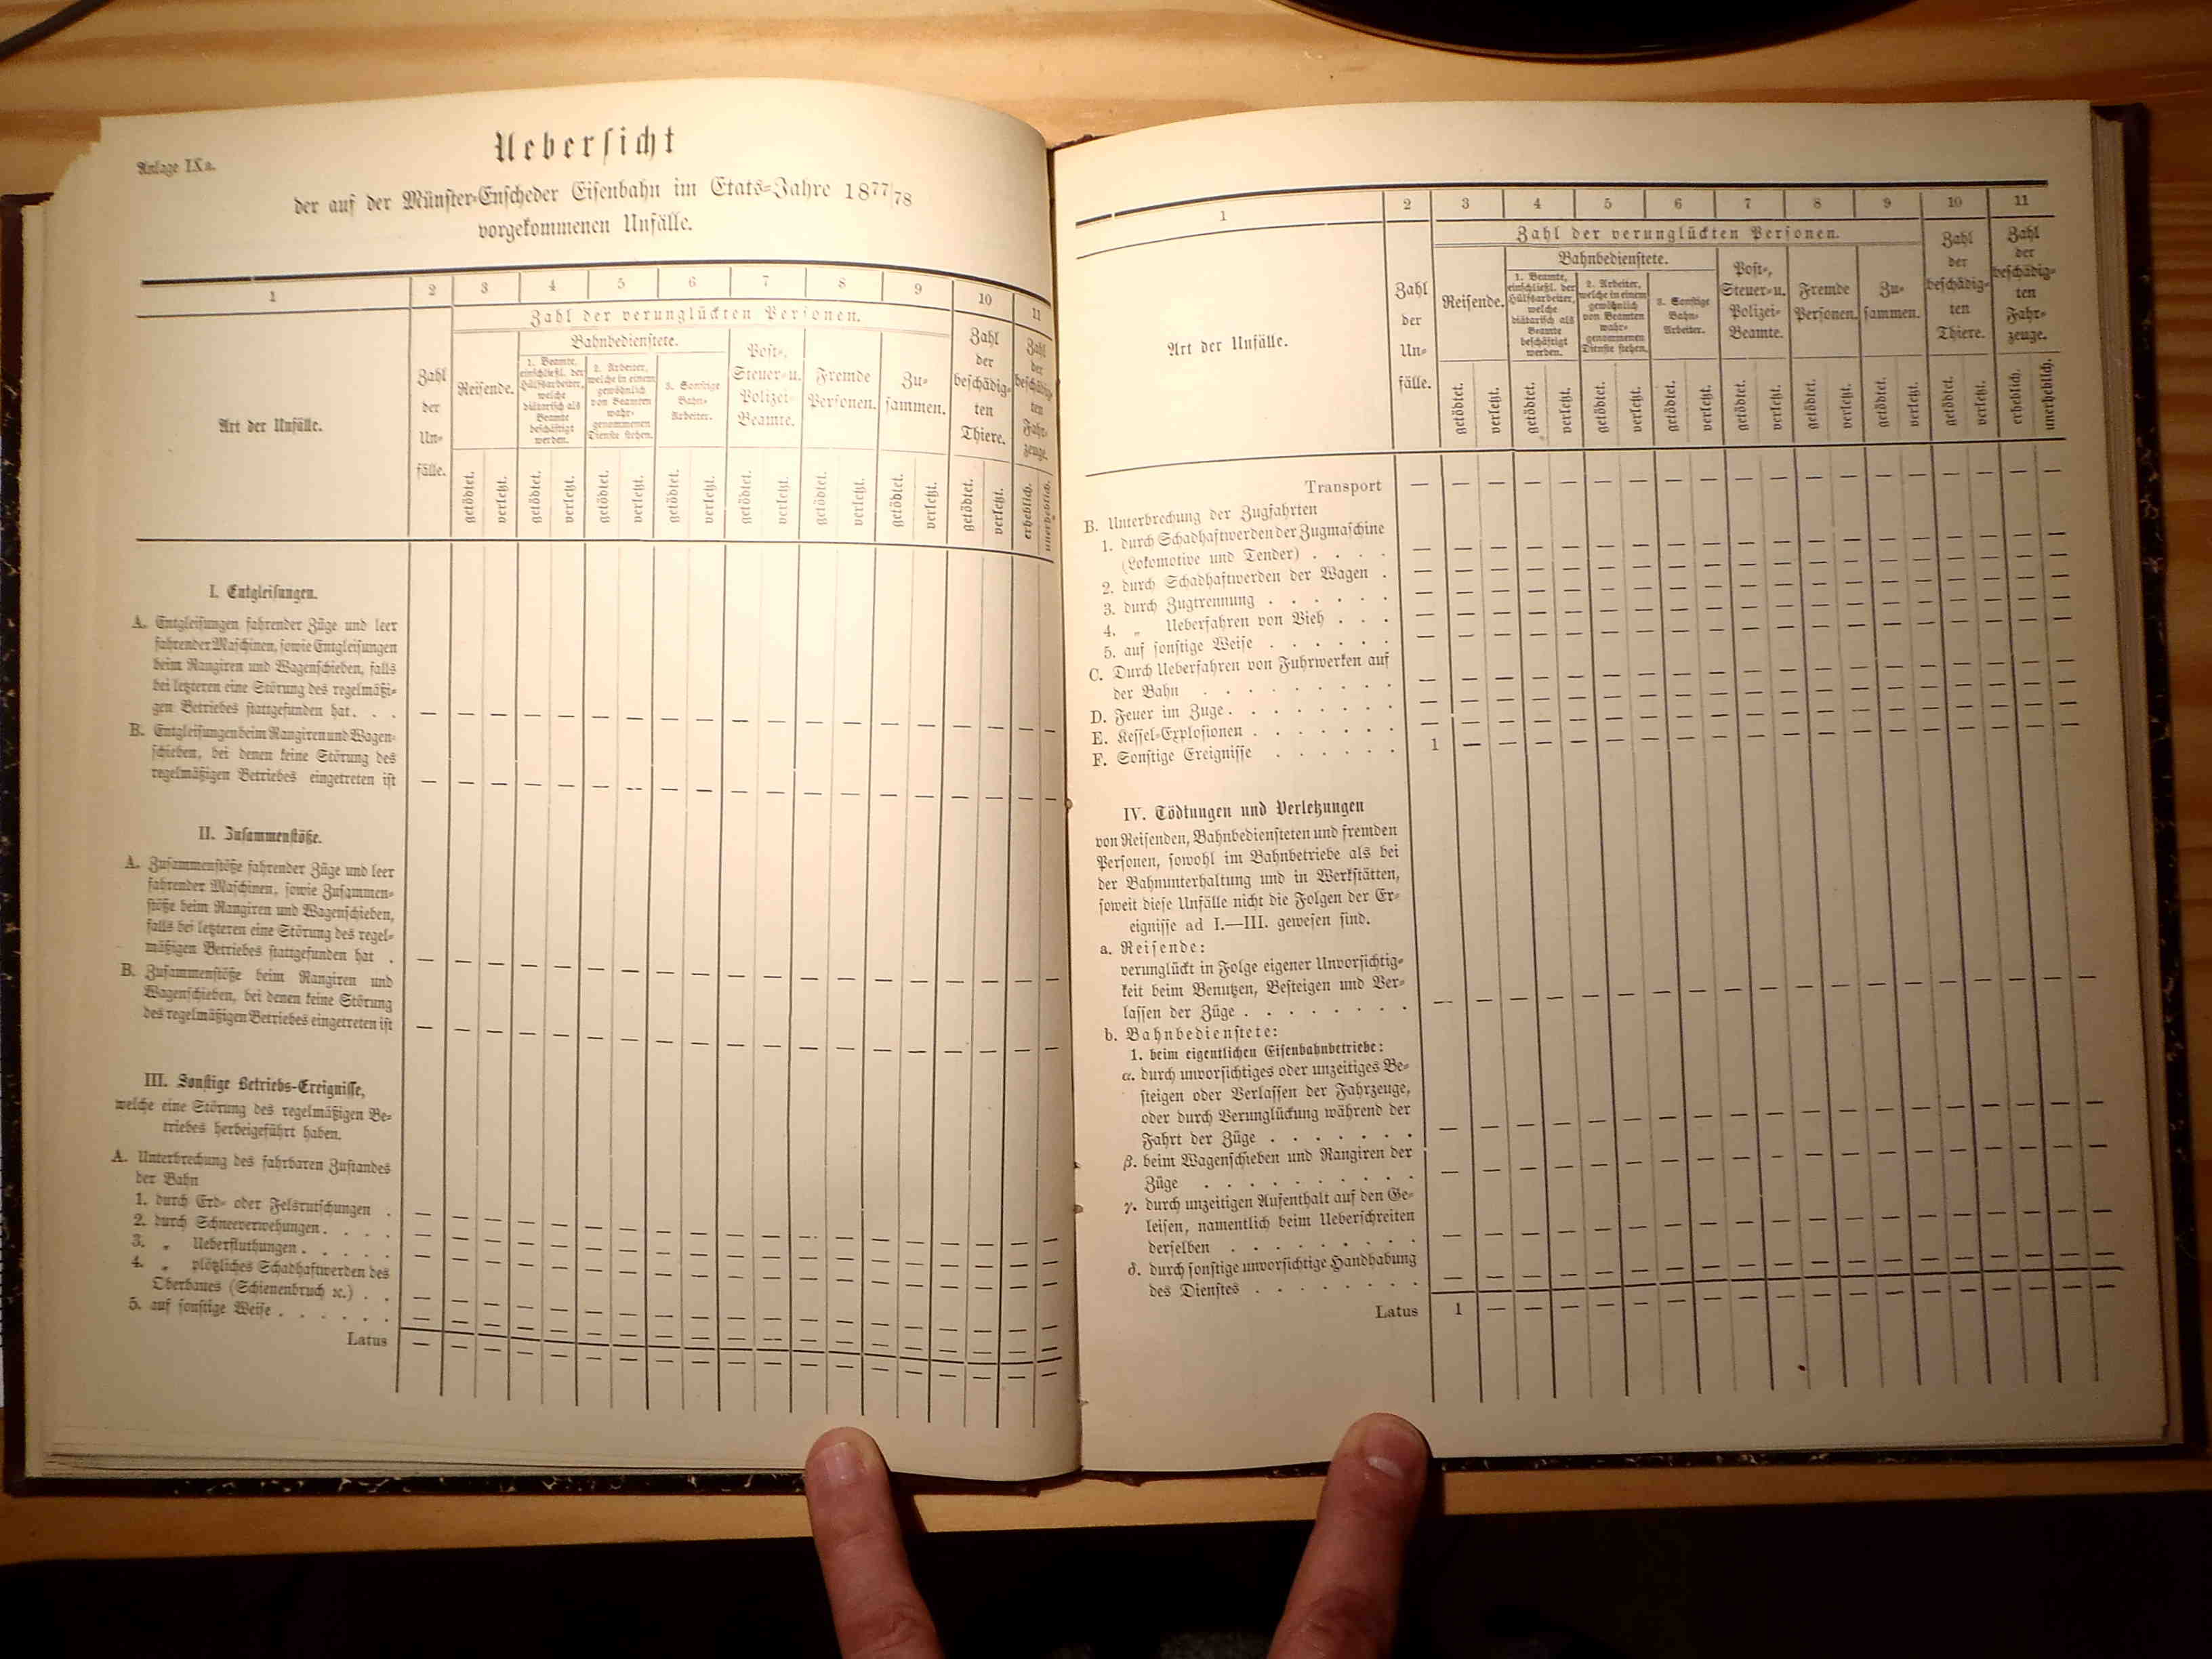 Anlage IXa.
Uebersicht
der auf der Münster-Enscheder Eisenbahn im Etats-Jahre 1877/78
vorgekommenen Unfälle.
1 2 3 4 5 6 7 8 9 10 11
Art der Unfälle.
Zahl
der
Un-
fälle.
Zahl der verunglückten Personen.
Reisende.
Bahnbedienstete.
1. Beamte,
einschließl. der
Hülfsarbeiter,
welche
diätarisch als
Beamte
beschäftigt
werden.
2. Arbeiter,
welche in einem
gewöhnlich
von Beamten
wahr-
genommenen
Dienste stehen.
3. Sonstige
Bahn-
Arbeiter.
Post-,
Steuer- u.
Polizei-
Beamte.
Fremde
Personen.
Zu-
sammen.
Zahl
der
beschädig-
ten
Thiere.
Zahl
der
beschädig-
ten
Fahr-
zeuge.
getödtet. verletzt. getödtet. verletzt. getödtet. verletzt. getödtet. verletzt. getödtet. verletzt. getödtet. verletzt. getödtet. verletzt. getödtet. verletzt. erheblich. unerheblich.
I. Entgleisungen.
A. Entgleisungen fahrender Züge und leer
fahrender Maschinen, sowie Entgleisungen
beim Rangiren und Wagenschieben, falls
bei letzteren eine Störung des regelmäßi-
gen Betriebes stattgefunden hat. . . — — — — — — — — — — — — — — — — — — —
B. Entgleisungen beim Rangiren und Wagen-
schieben, bei denen keine Störung des
regelmäßigen Betriebes eingetreten ist — — — — — — — — — — — — — — — — — — —
II. Zusammenstöße.
A. Zusammenstöße fahrender Züge und leer
fahrender Maschinen, sowie Zusammen-
stöße beim Rangiren und Wagenschieben,
falls bei letzteren eine Störung des regel-
mäßigen Betriebes stattgefunden hat . — — — — — — — — — — — — — — — — — — —
B. Zusammenstöße beim Rangiren und
Wagenschieben, bei denen keine Störung
des regelmäßigen Betriebes eingetreten ist — — — — — — — — — — — — — — — — — — —
III. Sonstige Betriebs-Ereignisse,
welche eine Störung des regelmäßigen Be-
triebes herbeigeführt haben.
A. Unterbrechung des fahrbaren Zustandes
der Bahn
1. durch Erd- oder Felsrutschungen . — — — — — — — — — — — — — — — — — — —
2. durch Schneeverwehungen. . . . — — — — — — — — — — — — — — — — — — —
3. „ Ueberfluthungen . . . . . — — — — — — — — — — — — — — — — — — —
4. „ plötzliches Schadhaftwerden des
Oberbaues (Schienenbruch ꝛc.) . . — — — — — — — — — — — — — — — — — — —
5. auf sonstige Weise . . . . . . — — — — — — — — — — — — — — — — — — —
Latus — — — — — — — — — — — — — — — — — — —
1 2 3 4 5 6 7 8 9 10 11
Art der Unfälle.
Zahl
der
Un-
fälle.
Zahl der verunglückten Personen.
Reisende.
Bahnbedienstete.
1. Beamte,
einschließl. der
Hülfsarbeiter,
welche
diätarisch als
Beamte
beschäftigt
werden.
2. Arbeiter,
welche in einem
gewöhnlich
von Beamten
wahr-
genommenen
Dienste stehen.
3. Sonstige
Bahn-
Arbeiter.
Post-,
Steuer- u.
Polizei-
Beamte.
Fremde
Personen.
Zu-
sammen.
Zahl
der
beschädig-
ten
Thiere.
Zahl
der
beschädig-
ten
Fahr-
zeuge.
getödtet. verletzt. getödtet. verletzt. getödtet. verletzt. getödtet. verletzt. getödtet. verletzt. getödtet. verletzt. getödtet. verletzt. getödtet. verletzt. erheblich. unerheblich.
Transport — — — — — — — — — — — — — — — — — — —
B. Unterbrechung der Zugfahrten
1. durch Schadhaftwerden der Zugmaschine
(Lokomotive und Tender) . . . . — — — — — — — — — — — — — — — — — — —
2. durch Schadhaftwerden der Wagen . — — — — — — — — — — — — — — — — — — —
3. durch Zugtrennung . . . . . . — — — — — — — — — — — — — — — — — — —
4. „ Ueberfahren von Vieh . . . — — — — — — — — — — — — — — — — — — —
5. auf sonstige Weise . . . . . . — — — — — — — — — — — — — — — — — — —
C. Durch Ueberfahren von Fuhrwerken auf
der Bahn . . . . . . . . . — — — — — — — — — — — — — — — — — — —
D. Feuer im Zuge. . . . . . . . — — — — — — — — — — — — — — — — — — —
E. Kessel-Explosionen . . . . . . . — — — — — — — — — — — — — — — — — — —
F. Sonstige Ereignisse . . . . . . 1 — — — — — — — — — — — — — — — — — —
IV. Tödtungen und Verletzungen
von Reisenden, Bahnbediensteten und fremden
Personen, sowohl im Bahnbetriebe als bei
der Bahnunterhaltung und in Werkstätten,
soweit diese Unfälle nicht die Folgen der Er-
eignisse ad I.—III. gewesen sind.
a. Reisende:
verunglückt in Folge eigener Unvorsichtig-
keit beim Benutzen, Besteigen und Ver-
lassen der Züge . . . . . . . . — — — — — — — — — — — — — — — — — — —
b. Bahnbedienstete:
1. beim eigentlichen Eisenbahnbetriebe:
α. durch unvorsichtiges oder unzeitiges Be-
steigen oder Verlassen der Fahrzeuge,
oder durch Verunglückung während der
Fahrt der Züge . . . . . . . — — — — — — — — — — — — — — — — — — —
β. beim Wagenschieben und Rangiren der
Züge . . . . . . . . . . — — — — — — — — — — — — — — — — — — —
γ. durch unzeitigen Aufenthalt auf den Ge-
leisen, namentlich beim Ueberschreiten
derselben . . . . . . . . . — — — — — — — — — — — — — — — — — — —
δ. durch sonstige unvorsichtige Handhabung
des Dienstes . . . . . . . . — — — — — — — — — — — — — — — — — — —
Latus 1 — — — — — — — — — — — — — — — — — —